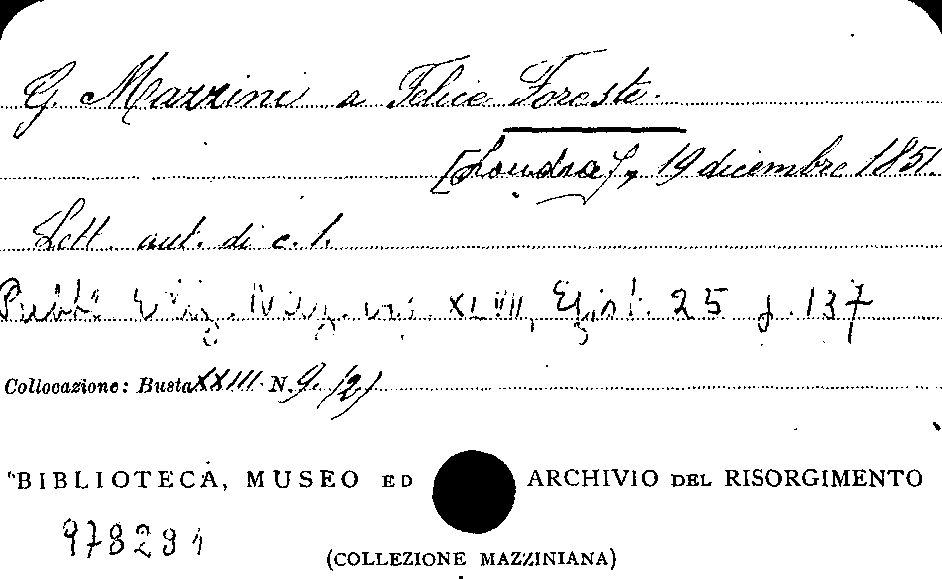 G. Mazzini a Felice Foresti.
[Londra], 19 dicembre 1851.
Lett. aut. di c. 1.
Pubbl. Ediz. Naz. vol. XLVII, Epist. 25 p. 137
Collocazione: Busta XXIII N. 9. (2)
"BIBLIOTECA, MUSEO ED ARCHIVIO DEL RISORGIMENTO
978291
(COLLEZIONE MAZZINIANA)